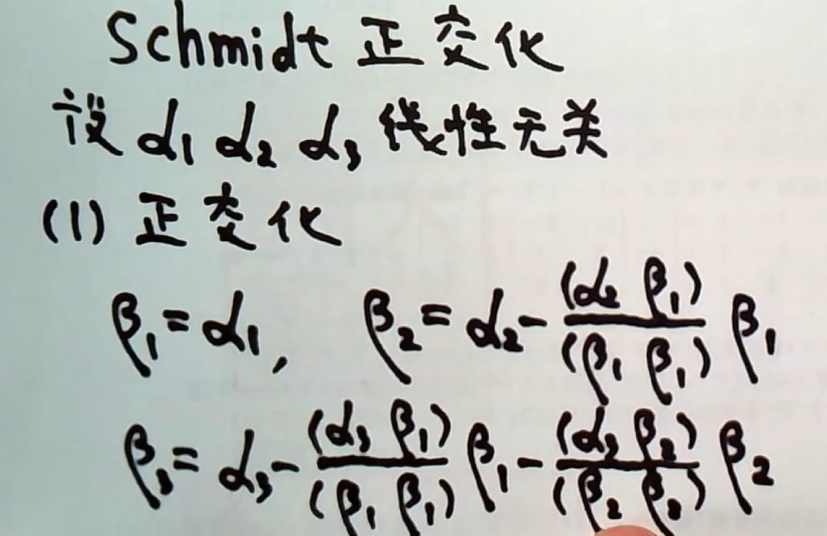 Schmidt 正交化
设 α₁ α₂ α₃ 线性无关
(1) 正交化
β₁ = α₁, β₂ = α₂ - (α₂ β₁)/(β₁ β₁) β₁
β₃ = α₃ - (α₃ β₁)/(β₁ β₁) β₁ - (α₃ β₂)/(β₂ β₂) β₂